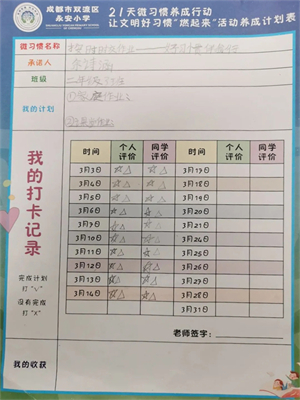 成都市双流区
永安小学
21天微习惯养成行动
让文明好习惯“燃起来”活动养成计划表
微习惯名称
承诺人
班级
我的计划
我的打卡记录
完成计划
打“√”
没有完成
打“X”
时间 个人评价 同学评价 时间 个人评价 同学评价
3月3日 ☆△ ☆△ 3月17日
3月4日 ☆△ ☆△ 3月18日
3月5日 ☆△ ☆△ 3月19日
3月6日 ☆△ ☆△ 3月20日
3月7日 ☆△ ☆△ 3月21日
3月10日 ☆△ ☆△ 3月24日
3月11日 ☆△ ☆△ 3月25日
3月12日 ☆△ ☆△ 3月26日
3月13日 ☆△ ☆△ 3月27日
3月14日 ☆△ ☆△ 3月28日
3月31日
老师签字：
我的收获